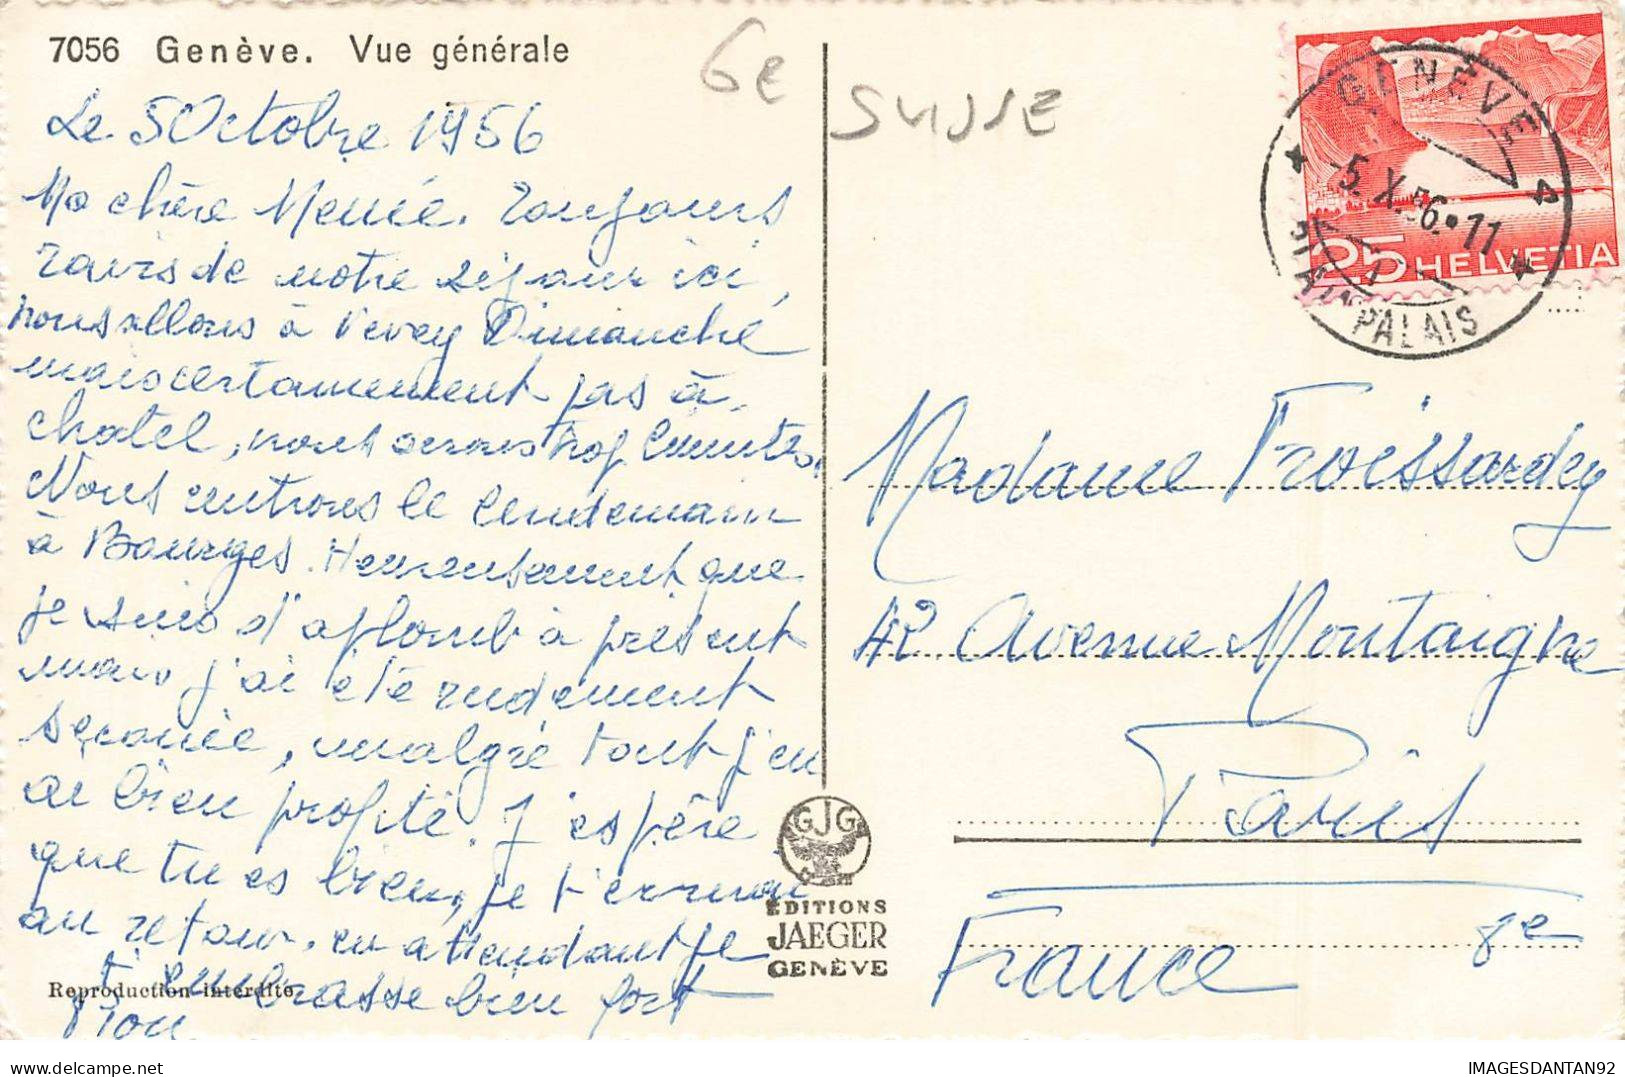 7056 Genève. Vue générale
6e
SUISSE
Le 5 Octobre 1956
Ma chère Toujours
ravis de notre séjour ici,
nous allons à Vevey Dimanche
mais certainement pas à
chatel, nous serons trop limités.
Nous rentrons le lendemain
à Bourges. Heureusement que
je suis d'aplomb à présent
mais j'ai été rudement
secouée, malgré tout j'en
ai bien profité. J'espère
que tu es bien, je t'
au retour. en attendant je
t'embrasse bien fort
GENÈVE
-5.X.56.-11
PLAINPALAIS
25 HELVETIA
Madame Froissardey
42 Avenue Montaigne
Paris
8e
France
GJG
ÉDITIONS
JAEGER
GENÈVE
Reproduction interdite
IMAGESDANTAN92